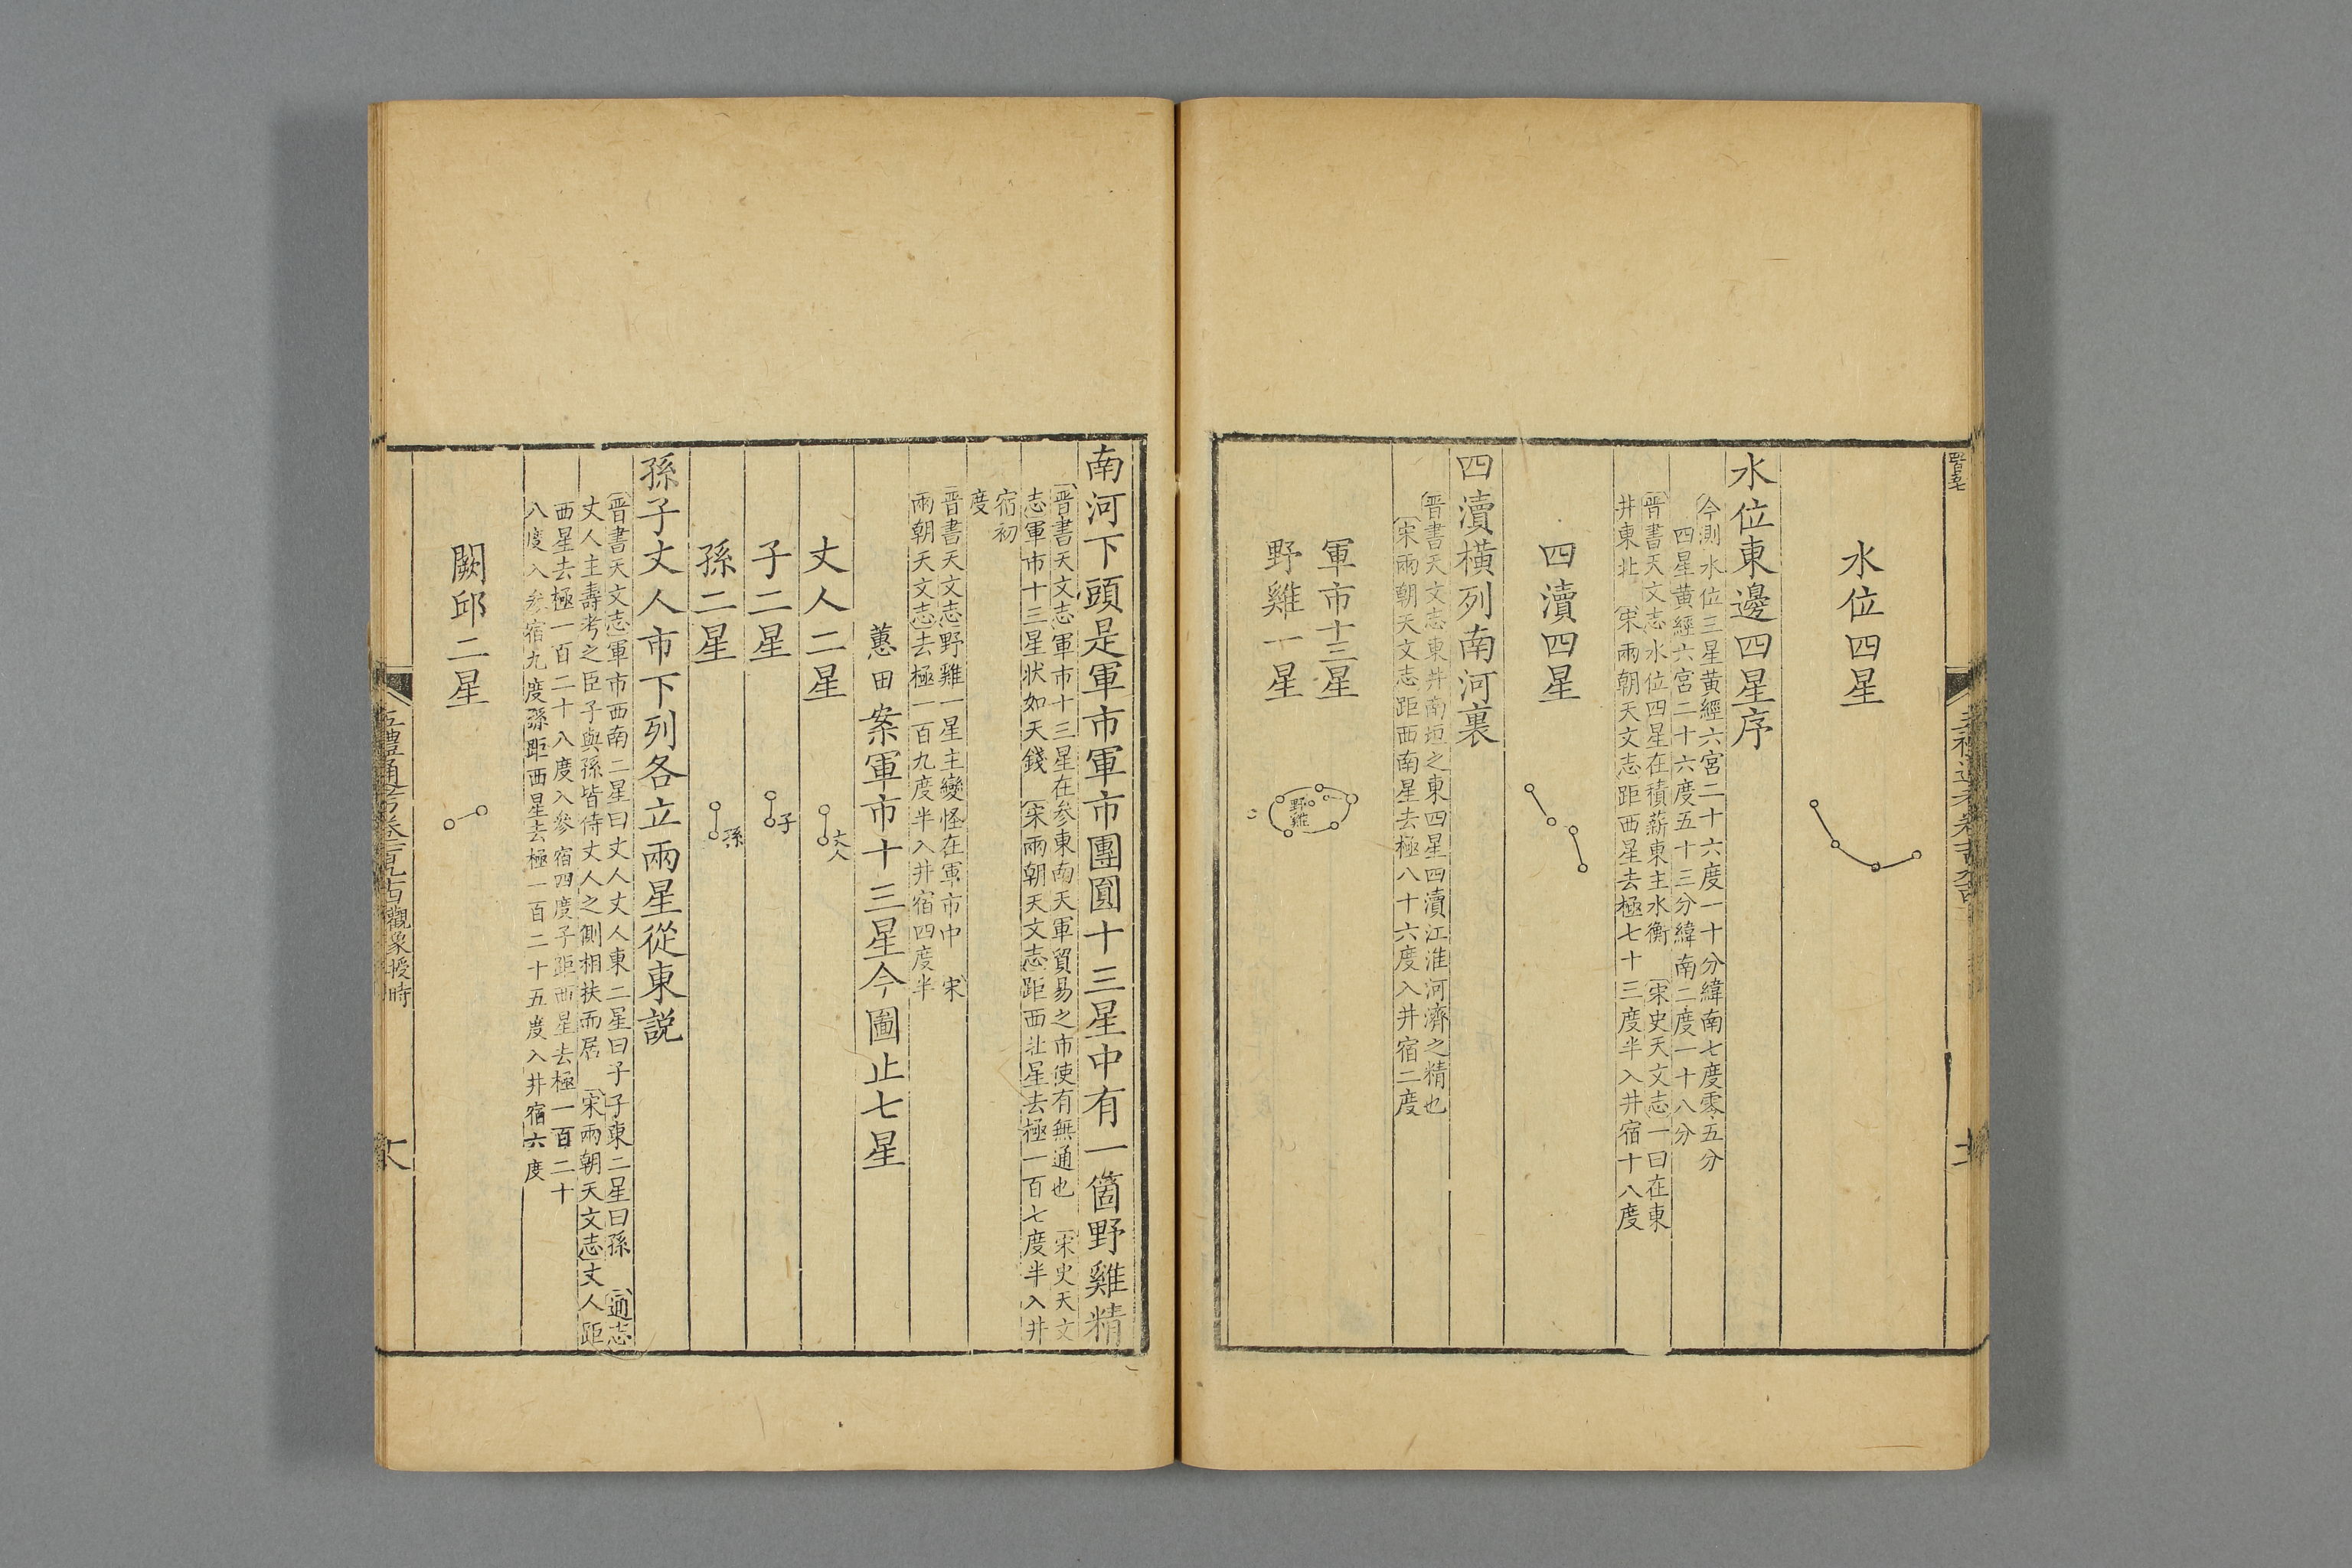 水位四星
水位東邊四星序
今測水位三星黃經六宮二十六度一十分緯南七度零五分
四星黃經六宮二十六度五十三分緯南二度一十八分
晉書天文志水位四星在積薪東主水衡 宋史天文志一曰在東
井東北 宋兩朝天文志距西星去極七十三度半入井宿十八度
四瀆四星
四瀆橫列南河裏
晉書天文志東井南垣之東四星四瀆江淮河濟之精也
宋兩朝天文志距西南星去極八十六度入井宿二度
軍市十三星
野雞一星
野雞
南河下頭是軍市軍市團圓十三星中有一箇野雞精
晉書天文志軍市十三星在參東南天軍貿易之市使有無通也 宋史天文
志軍市十三星狀如天錢 宋兩朝天文志距西北星去極一百七度半入井
宿初
度
晉書天文志野雞一星主變怪在軍市中 宋
兩朝天文志去極一百九度半入井宿四度半
蕙田案軍市十三星今圖止七星
丈人二星
丈人
子二星
子
孫二星
孫
孫子丈人市下列各立兩星從東説
晉書天文志軍市西南二星曰丈人丈人東二星曰子子東二星曰孫 通志
丈人主壽考之臣子與孫皆侍丈人之側相扶而居 宋兩朝天文志丈人距
西星去極一百二十八度入參宿四度子距西星去極一百二十
八度入參宿九度孫距西星去極一百二十五度入井宿六度
闕邱二星
五禮通考卷一百九十古觀象授時